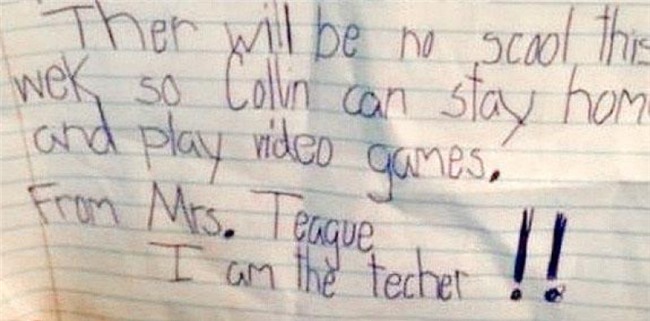 Ther will be no scool this
wek so Collin can stay hom
and play video games.
From Mrs. Teague
I am the techer !!